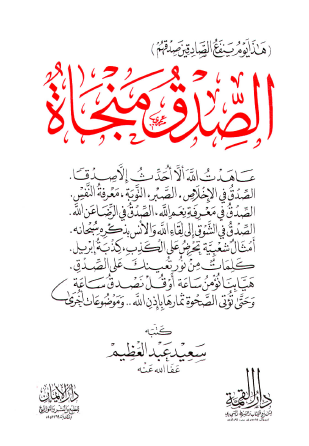 (هَذَا يَوْمُ يَنْفَعُ الصَّادِقِينَ صِدْقُهُمْ)
الصِّدْقُ مَنْجَاةٌ
عَاهَدْتُ اللَّهَ أَلَّا أُحَدِّثَ إِلَّا صِدْقًا.
الصِّدْقُ فِي الْإِخْلَاصِ. الصَّبْرِ. التَّوْبَةِ. مَعْرِفَةِ النَّفْسِ.
الصِّدْقُ فِي مَعْرِفَةِ نِعَمِ اللَّهِ. الصِّدْقُ فِي الرِّضَا عَنِ اللَّهِ.
الصِّدْقُ فِي الشَّوْقِ إِلَى لِقَاءِ اللَّهِ وَالْأُنْسِ بِذِكْرِهِ سُبْحَانَهُ.
أَمْثَالٌ شَعْبِيَّةٌ تُحَرِّضُ عَلَى الْكَذِبِ. كِذْبَةُ إِبْرِيلَ.
كَلِمَاتٌ مِنْ نُورٍ تُعِينُكَ عَلَى الصِّدْقِ.
هَيَّا بِنَا نُؤْمِنْ سَاعَةً أَوْ قُلْ نَصْدُقْ سَاعَةً
وَحَتَّى تُؤْتِيَ الصَّحْوَةُ ثِمَارَهَا بِإِذْنِ اللَّهِ .. وَمَوْضُوعَاتٌ أُخْرَى
كَتَبَهُ
سَعِيد عَبْد الْعَظِيم
عَفَا اللهُ عَنْهُ
دَارُ الْإِيمَانِ
دَارُ الْقِمَّةِ